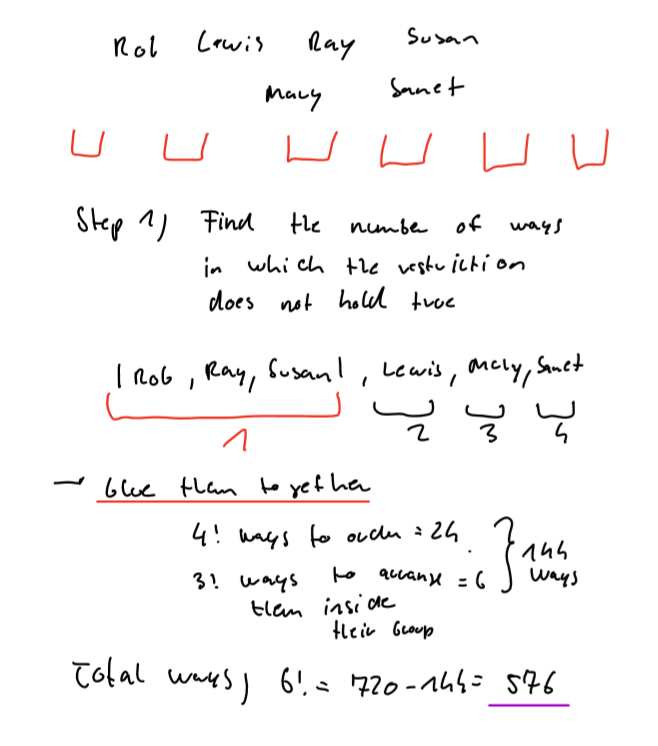 Rob Lewis Ray Susan
Macy Sanet
Step 1) Find the number of ways
in which the restriction
does not hold true
| Rob, Ray, Susan |, Lewis, Macy, Sanet
1 2 3 4
→ Glue them together
4! ways to order = 24
3! ways to arrange = 6
them inside
their Group
} 144
ways
Total ways) 6! = 720 - 144 = 576